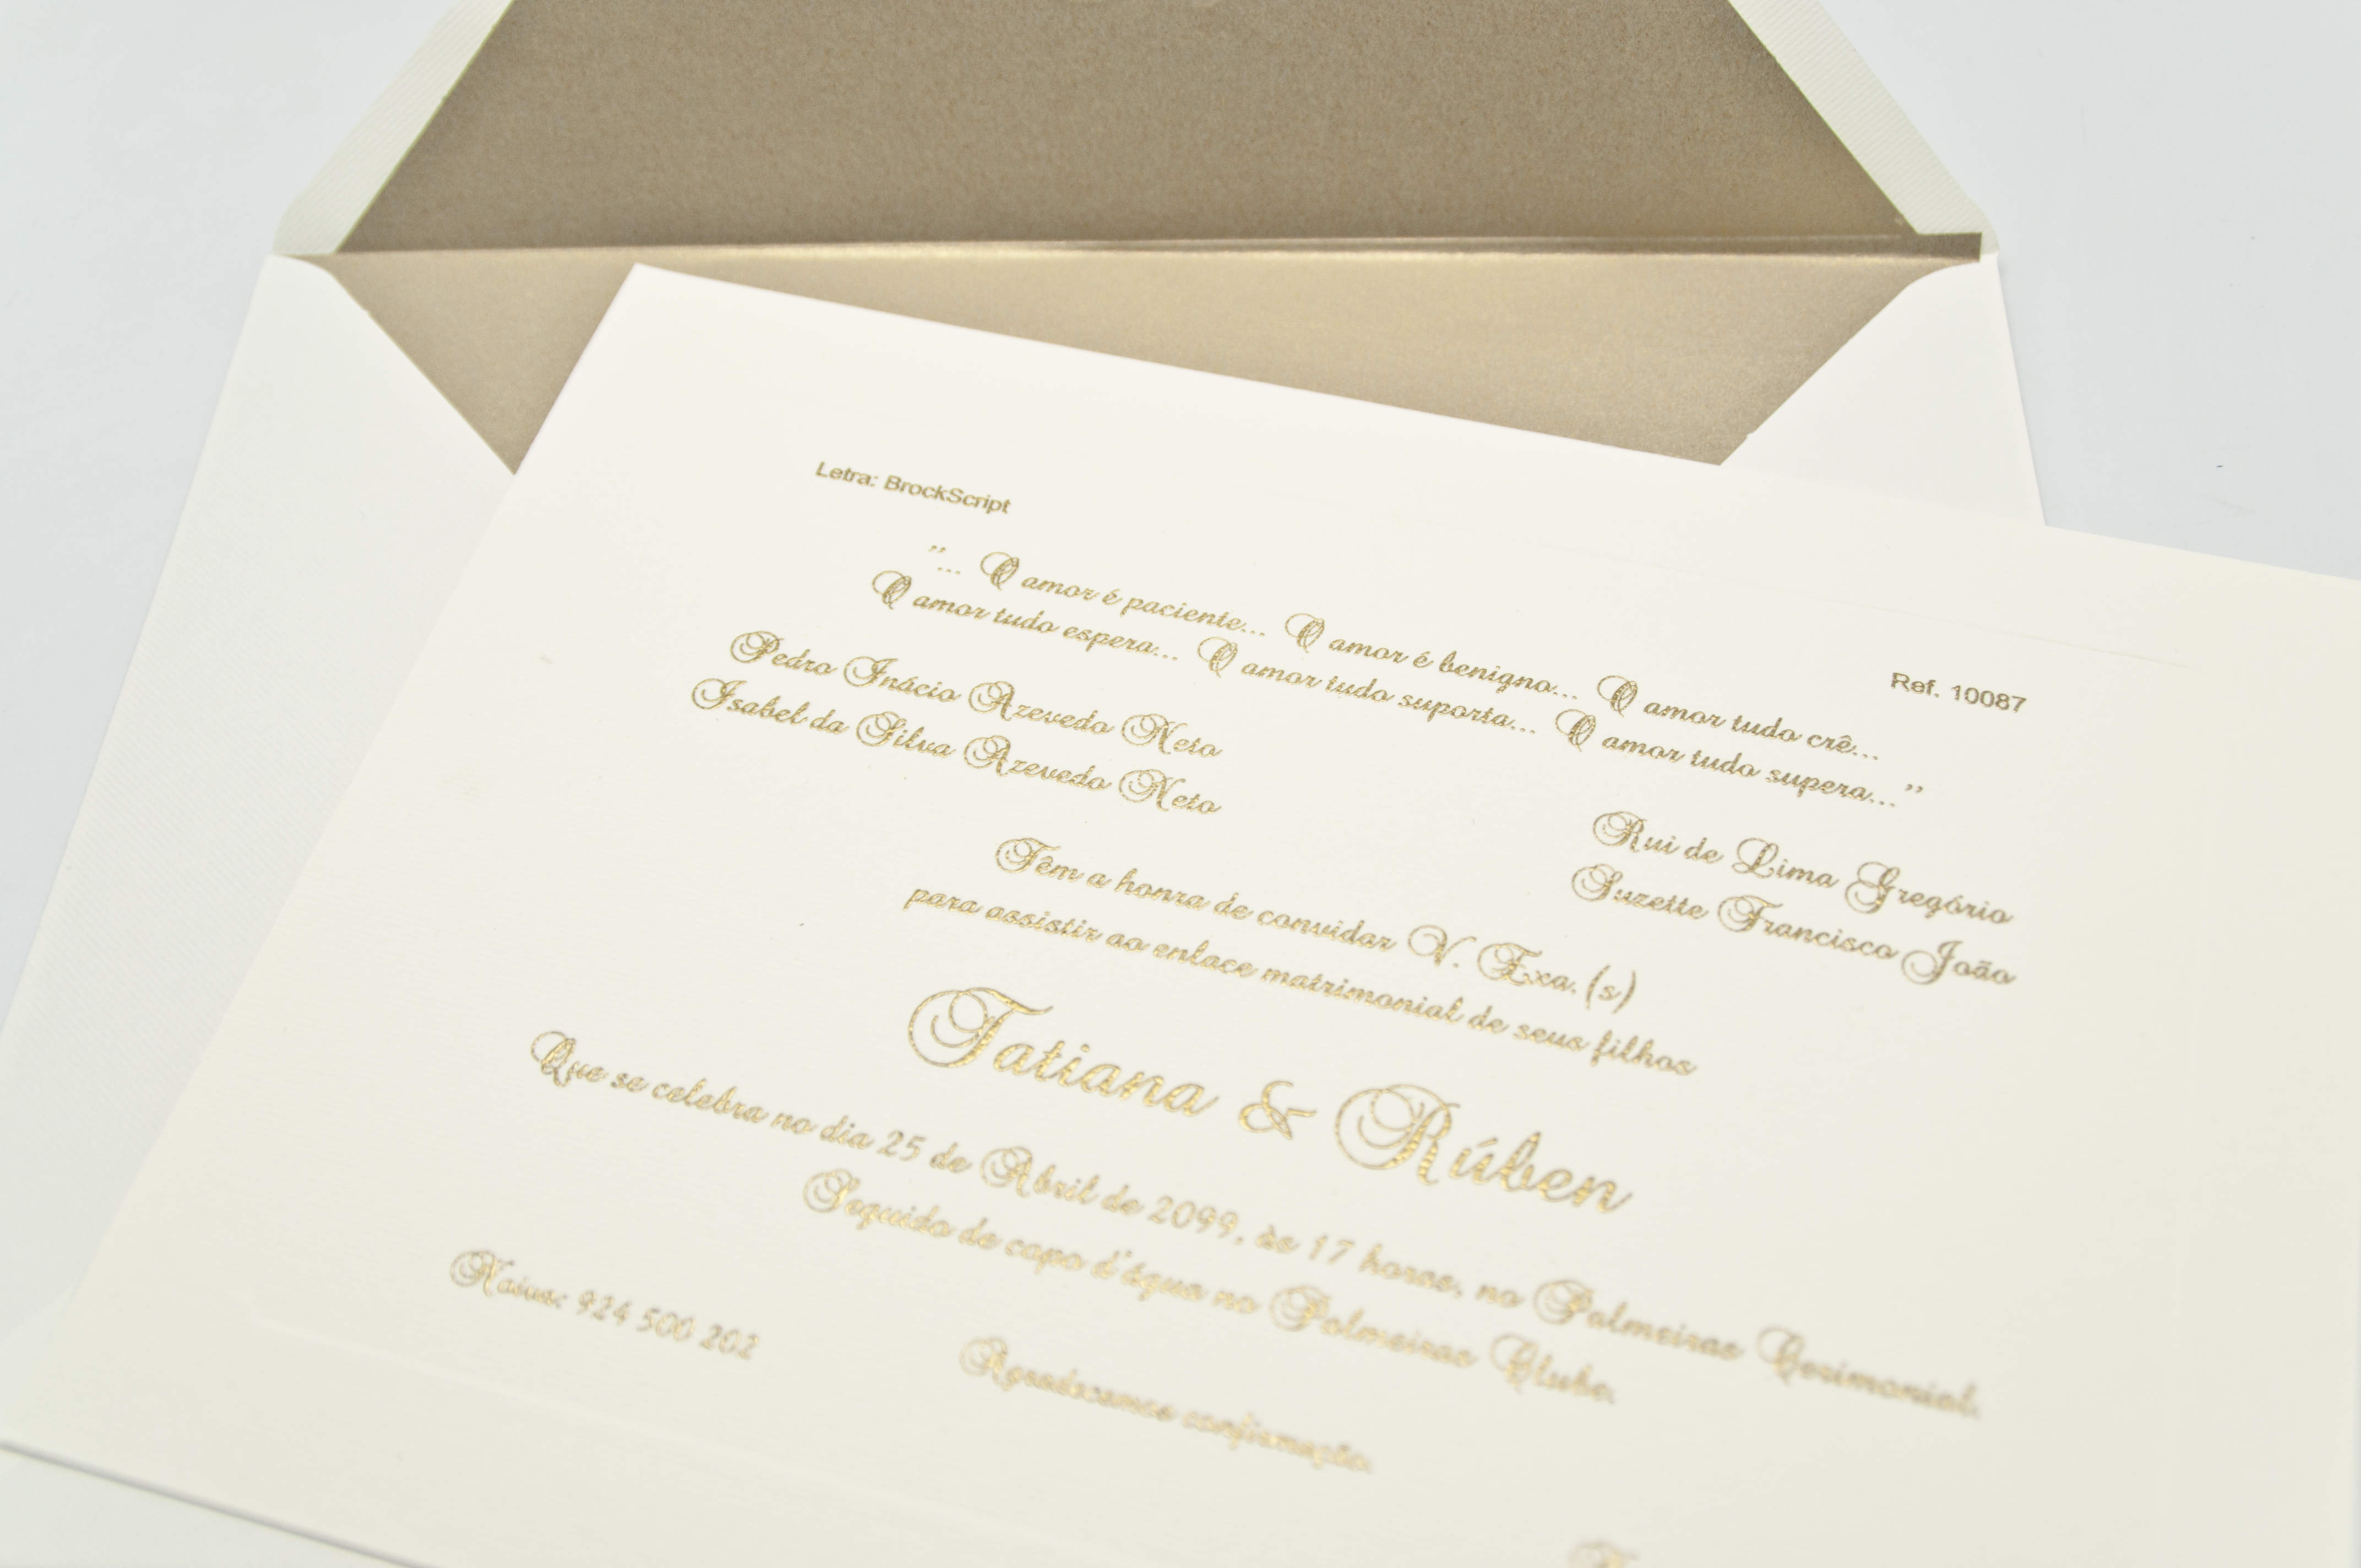 Letra: BrockScript
Ref. 10087
"... O amor é paciente... O amor é benigno... O amor tudo crê...
O amor tudo espera... O amor tudo suporta... O amor tudo supera..."
Pedro Inácio Azevedo Neto
Isabel da Silva Azevedo Neto
Rui de Lima Gregório
Suzette Francisco João
Têm a honra de convidar V. Exa.(s)
para assistir ao enlace matrimonial de seus filhos
Tatiana & Rúben
Que se celebra no dia 25 de Abril de 2099, às 17 horas, no Palmeiras Cerimonial.
Seguido de copo d'água no Palmeiras Clube.
Noiva: 924 500 202
Agradecemos confirmação.